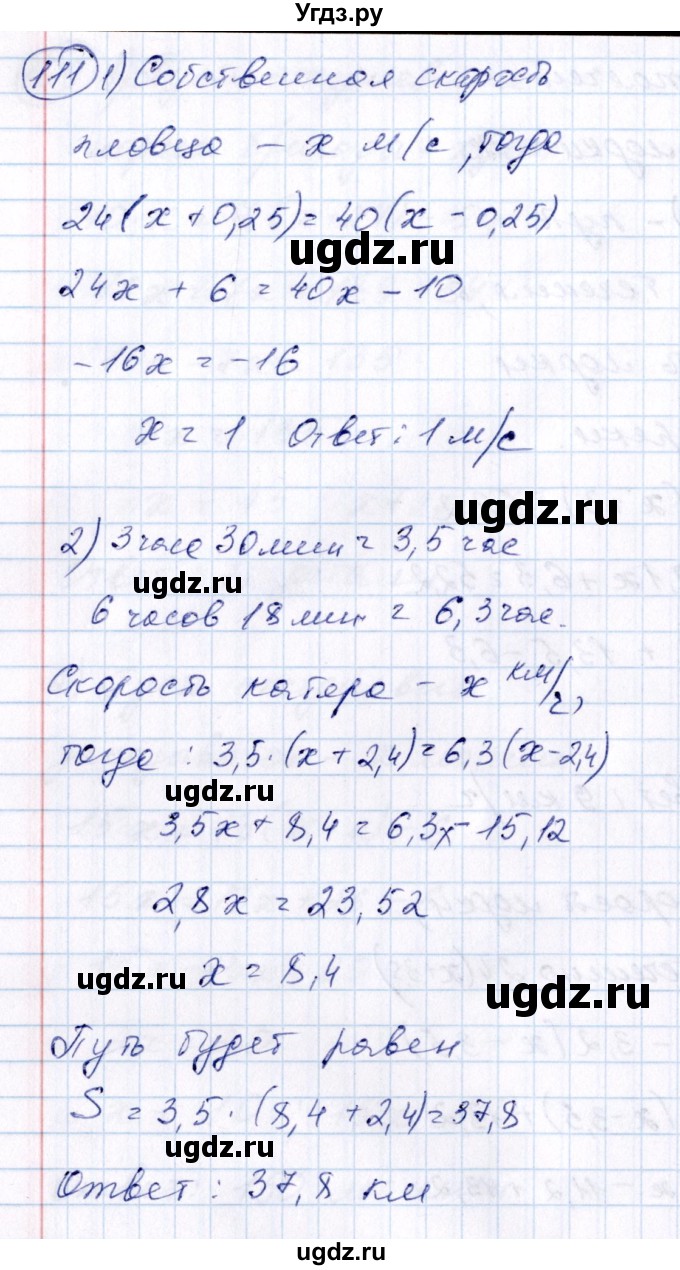 Угдз.ру
111 1) Собственная скорость
пловца – x м/с, тогда
24(x + 0,25) = 40(x – 0,25)
ugdz.ru
24x + 6 = 40x – 10
-16x = -16
x = 1 Ответ: 1 м/с
ugdz.ru
2) 3 часа 30 мин = 3,5 час
ugdz.ru
6 часов 18 мин = 6,3 час.
Скорость катера – x км/ч,
тогда: 3,5·(x + 2,4) = 6,3(x – 2,4)
ugdz.ru
3,5x + 8,4 = 6,3x – 15,12
2,8x = 23,52
ugdz.ru x = 8,4
ugdz.ru
Путь будет равен
S = 3,5 · (8,4 + 2,4) = 37,8
ugdz.ru
Ответ: 37,8 км
ugdz.ru